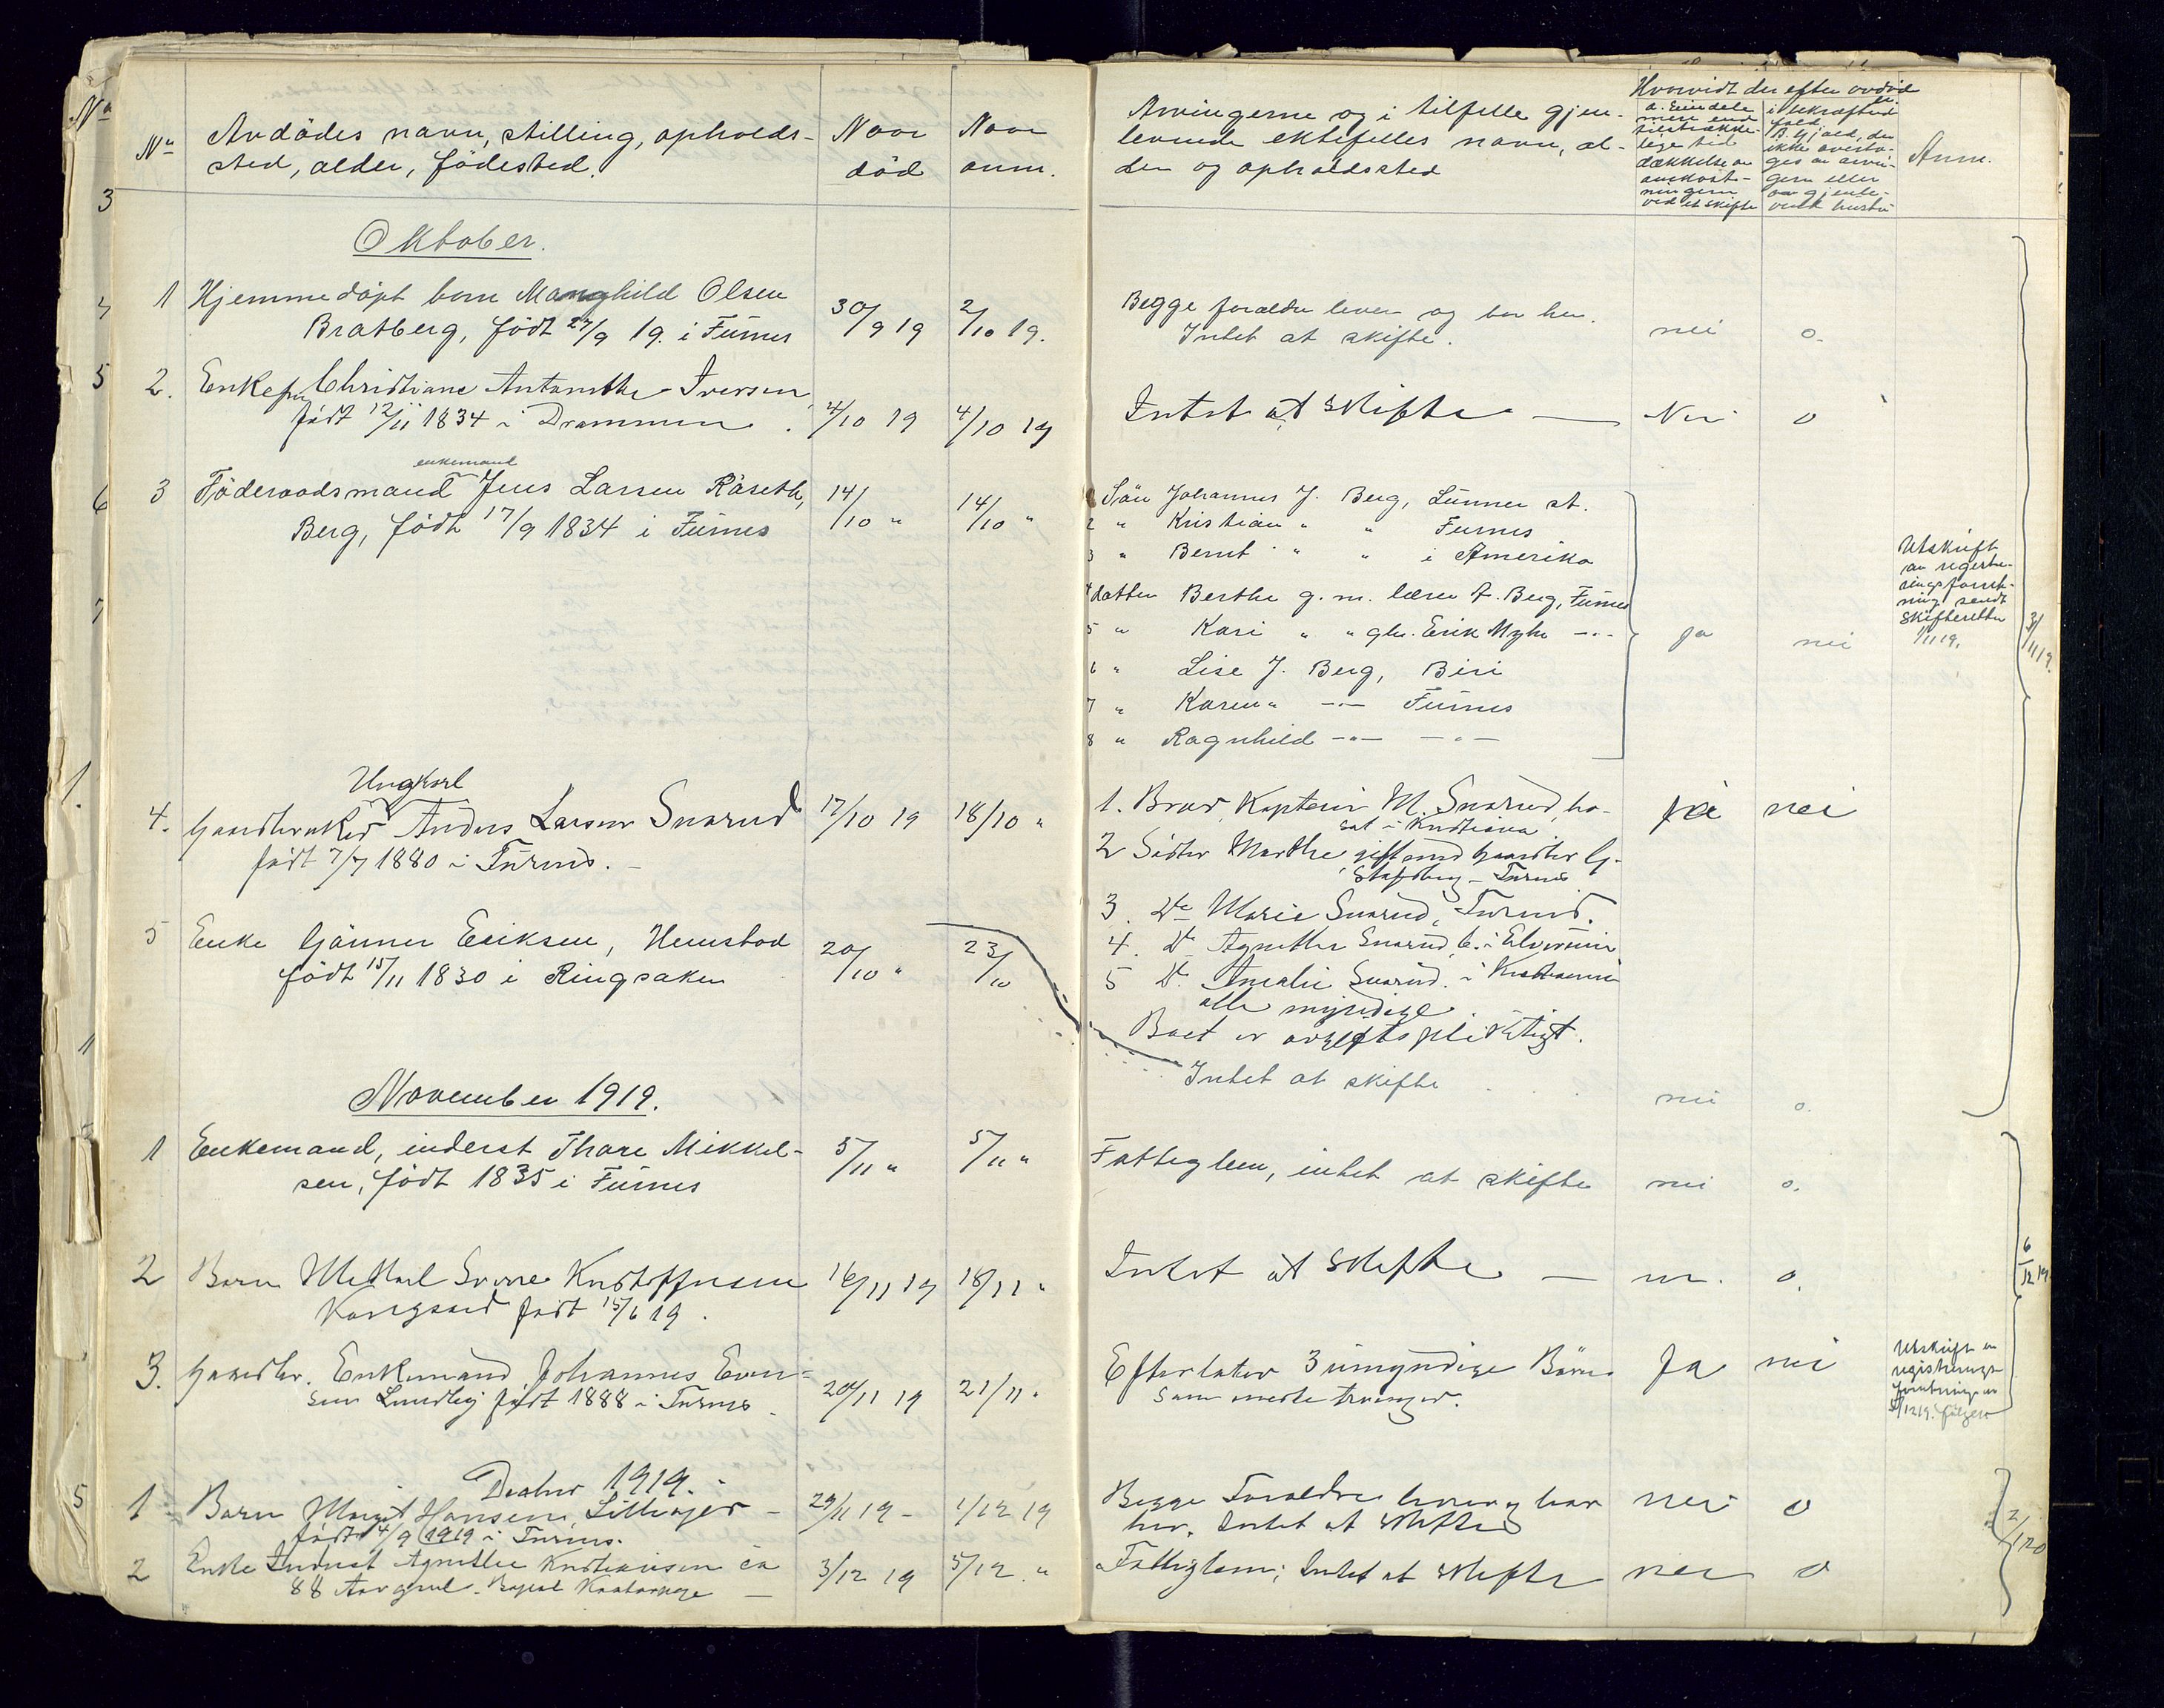 No
No Avdödes navn, stilling, opholds-
sted, alder, födested.
Naar
död
Naar
anm.
Arvingerne og i tilfelle gjen-
levende ektefelles navn, al-
der og opholdssted
Hvorvidt der efter avdöde
a. Eiendele
mere end
tilstrække-
lige til
dækkelse av
omkost-
ningerne
ved et skifte
i bekræftende
fald
B. Gjæld, der
ikke overta-
ges av arvin-
gerne eller
av gjenle-
vende
Anm.
3
Oktober.
1 Hjemmedöpt barn Magnhild Olsen
Bratberg, födt 27/9 19. i Furnes
30/9 19
2/10 19.
Begge foraeldre lever og bor her.
Intet at skifte.
nei
o.
2. Enkefru Christiane Antonette Iversen
födt 12/11 1834 i Drammen.
4/10 19
4/10 19
Intet at skifte —
Nei
o
enkemand
3 Föderaadsmand Jens Larsen Röseth,
Berg, födt 17/9 1834 i Furnes
14/10 "
14/10 "
Sön Johannes J. Berg, Lunner st.
2 " Kristian " " Furnes
3 " Bernt " " i Amerika
4 datter Berthe g. m. lærer A. Berg, Furnes
5 " Kari " " gbr. Erik Myhr -"-
6 " Lise J. Berg, Biri
7 " Karen " -"- Furnes
8 " Ragnhild -"- -"-
Ja
nei
Utskrift
av registre-
ringsforret-
ning sendt
Skifteretten
1/11 19.
3/11 19.
Ungkarl
4. Gaardbruker Anders Larsen Snarud
födt 7/7 1880 i Furnes. -
17/10 19
18/10 "
1. Bror, Kaptein M. Snarud, bo-
sat i Kristiania
2 Söster Marthe gift med Gaardbr G.
Stafsberg - Furnes
3. Do Marie Snarud, Furnes.
4. Do Agnethe Snarud, b. i Elverum
5 Do Amalie Snarud. i Kristiania
alle myndige
Boet er avgiftspliktigt.
Ja
nei
5 Enke Gjönner Eriksen, Hemstad
födt 15/11 1830 i Ringsaker
20/10 "
23/10
Intet at skifte
nei
o.
November 1919.
1 Enkemand, inderst Thore Mikkel-
sen, födt 1835 i Furnes
5/11 "
5/11 "
Fattiglem, intet at skifte
nei
o.
2 Barn Mikkel Sverre Kristoffersen
födt 15/6 19.
16/11 19
18/11 "
Intet at skifte —
nei.
o.
6/12 19
3. Gaardbr. Enkemand Johannes Even-
sen Lundby födt 1888 i Furnes.
20/11 19
21/11 "
Efterlater 3 umyndige Börn
Ja
nei
Utskrift av
registrerings
forretningen
/12 19. fölger
Decbr 1919.
1 Barn Margit Hansen, Lilleager -
födt 4/9 1919 i Furnes.
29/11 19 -
1/12 19
Begge Forældre lever og bor
her. Intet at skifte
nei
o
2 Enke Inderst Agnethe Kristiansen ca
88 Aar gml.
3/12 19
5/12 "
Fattiglem; Intet at skifte
nei
o
2/1 20